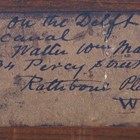 on the Delft
canal
Walter Wm Ma
4 Percy Street
Rathbone Pla
W